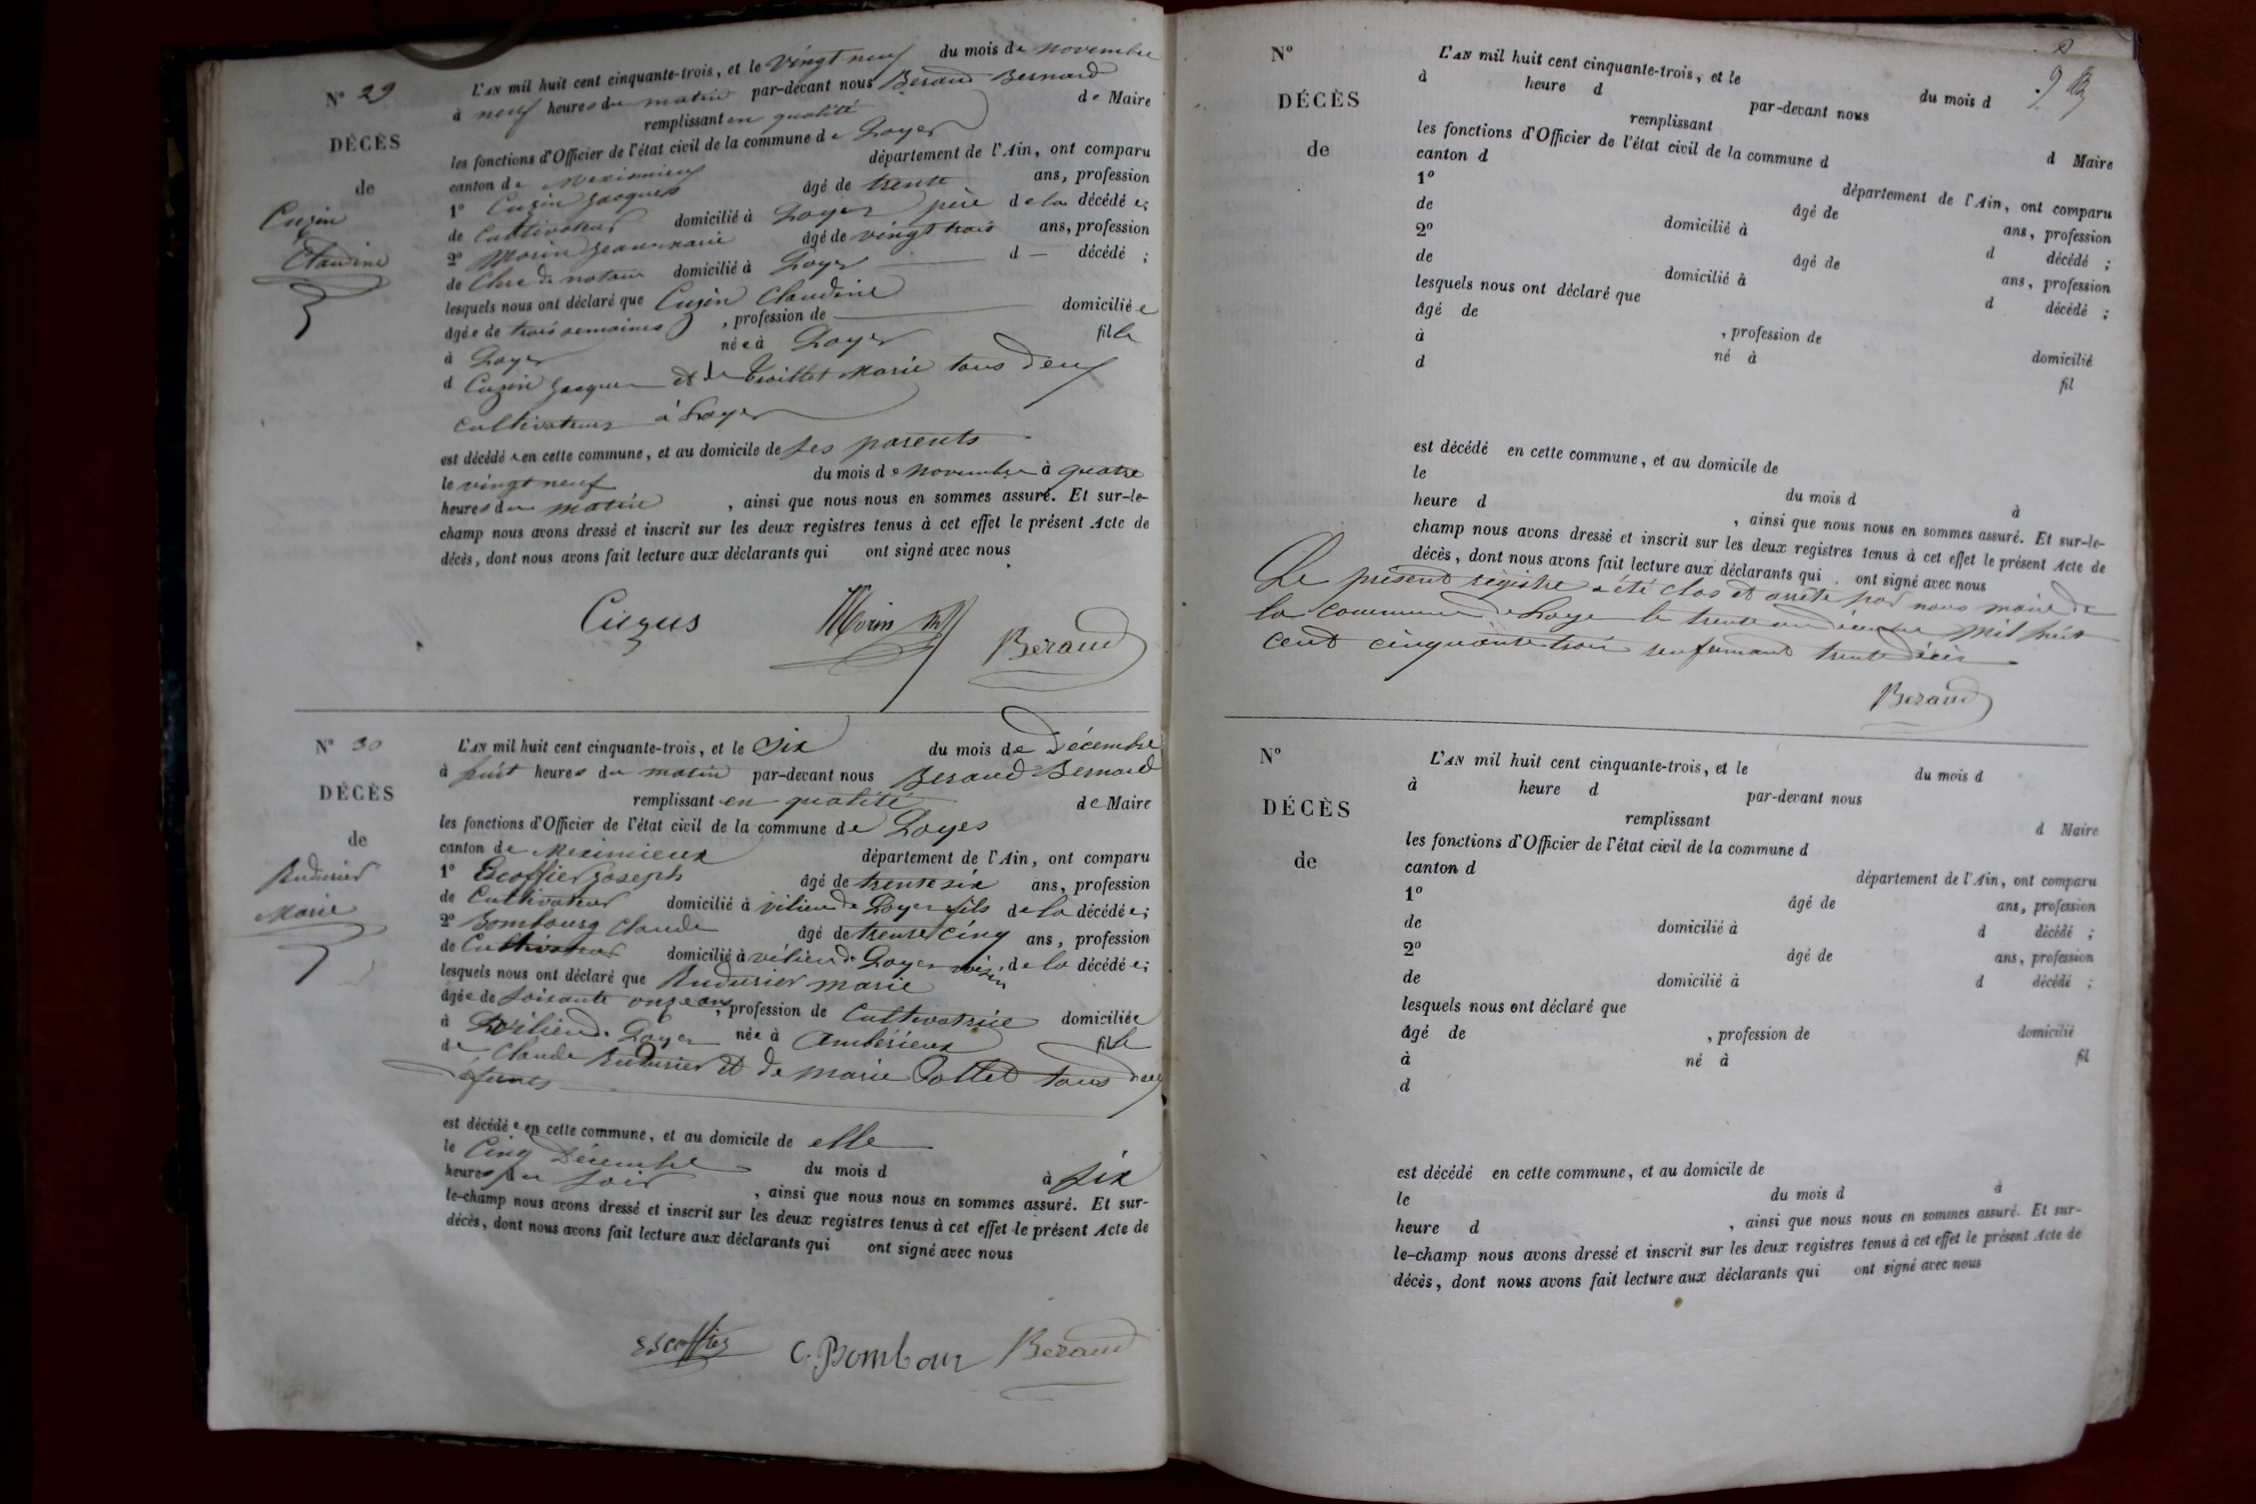 N° 29
DÉCÈS
de
Cuzin
Claudine
L'AN mil huit cent cinquante-trois, et le vingt neuf du mois de novembre
à neuf heures du matin par-devant nous Béraud Bernard
remplissant en qualité de Maire
les fonctions d'Officier de l'état civil de la commune de Loyes
canton de Meximieux département de l'Ain, ont comparu
1° Cuzin Jacques âgé de trente ans, profession
de Cultivateur domicilié à Loyes père de la décédée;
2° Morin Jean marie âgé de vingt trois ans, profession
de Clerc de notaire domicilié à Loyes d — décédé ;
lesquels nous ont déclaré que Cuzin Claudine
âgée de trois semaines , profession de domiciliée
à Loyes née à Loyes fille
d Cuzin Jacques et de Marie tous deux
cultivateurs à Loyes
est décédée en cette commune, et au domicile de ses parents
le vingt neuf du mois de novembre à quatre
heures du matin , ainsi que nous nous en sommes assuré. Et sur-le-
champ nous avons dressé et inscrit sur les deux registres tenus à cet effet le présent Acte de
décès, dont nous avons fait lecture aux déclarants qui ont signé avec nous
Morin Béraud
N° 30
DÉCÈS
de
Rudurier
Marie
L'AN mil huit cent cinquante-trois, et le Six du mois de Décembre
à huit heures du matin par-devant nous Beraud Bernard
remplissant en qualité de Maire
les fonctions d'Officier de l'état civil de la commune de Loyes
canton de Meximieux département de l'Ain, ont comparu
1° Escoffier Joseph âgé de trente six ans, profession
de Cultivateur domicilié à vilieu de Loyes fils de la décédée;
2° Bombourg Claude âgé de trente cinq ans, profession
de Cultivateur domicilié à vilieu de Loyes voisin de la décédée;
lesquels nous ont déclaré que Rudurier marie
âgée de soisante onze ans, profession de Cultivatrice domiciliée
à vilieu de Loyes née à Ambérieux fille
de Claude Rudurier et de marie Collet tous deux
défunts
est décédée en cette commune, et au domicile de elle
le Cinq Décembre du mois d à six
heures du soir , ainsi que nous nous en sommes assuré. Et sur-
le-champ nous avons dressé et inscrit sur les deux registres tenus à cet effet le présent Acte de
décès, dont nous avons fait lecture aux déclarants qui ont signé avec nous
Escoffier C. Bombour Beraud
9
N°
DÉCÈS
de
L'AN mil huit cent cinquante-trois, et le du mois d
à heure d par-devant nous
remplissant d Maire
les fonctions d'Officier de l'état civil de la commune d
canton d département de l'Ain, ont comparu
1° âgé de ans, profession
de domicilié à d décédé ;
2° âgé de ans, profession
de domicilié à d décédé ;
lesquels nous ont déclaré que
âgé de , profession de domicilié
à né à fil
d
est décédé en cette commune, et au domicile de
le du mois d à
heure d , ainsi que nous nous en sommes assuré. Et sur-le-
champ nous avons dressé et inscrit sur les deux registres tenus à cet effet le présent Acte de
décès, dont nous avons fait lecture aux déclarants qui ont signé avec nous
Le présent régistre a été clos et arrêté par nous maire de
la commune de Loyes le trente un décembre mil huit
cent cinquante trois renfermant trente décès
Beraud
N°
DÉCÈS
de
L'AN mil huit cent cinquante-trois, et le du mois d
à heure d par-devant nous
remplissant d Maire
les fonctions d'Officier de l'état civil de la commune d
canton d département de l'Ain, ont comparu
1° âgé de ans, profession
de domicilié à d décédé ;
2° âgé de ans, profession
de domicilié à d décédé ;
lesquels nous ont déclaré que
âgé de , profession de domicilié
à né à fil
d
est décédé en cette commune, et au domicile de
le du mois d à
heure d , ainsi que nous nous en sommes assuré. Et sur-
le-champ nous avons dressé et inscrit sur les deux registres tenus à cet effet le présent Acte de
décès, dont nous avons fait lecture aux déclarants qui ont signé avec nous